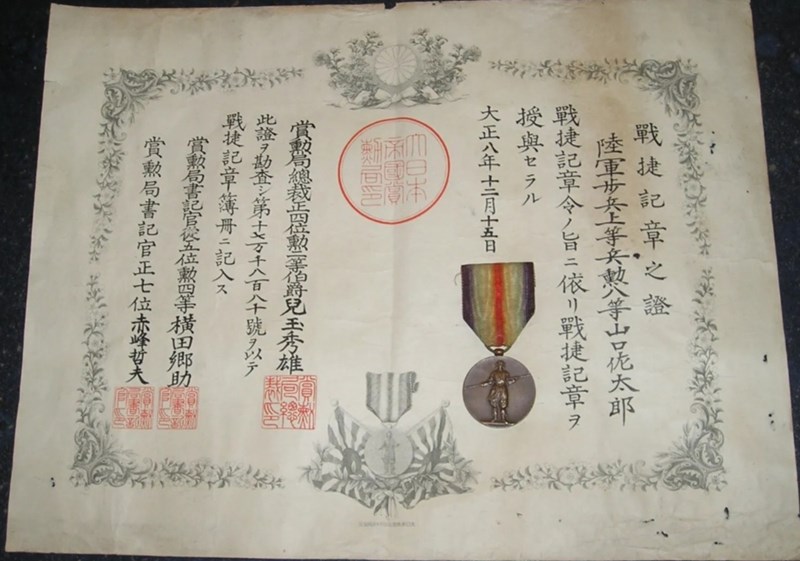 戰捷記章之證
陸軍歩兵上等兵勲八等山口佐太郎
戰捷記章令ノ旨ニ依リ戰捷記章ヲ
授與セラル
大正八年十二月十五日
大日本
帝國賞
勲局印
賞勲局總裁正四位勲二等伯爵兒玉秀雄
此證ヲ勘査シ第十七万千八百八十號ヲ以テ
戰捷記章簿冊ニ記入ス
賞勲局書記官從五位勲四等横田郷助
賞勲局書記官正七位赤峰哲夫